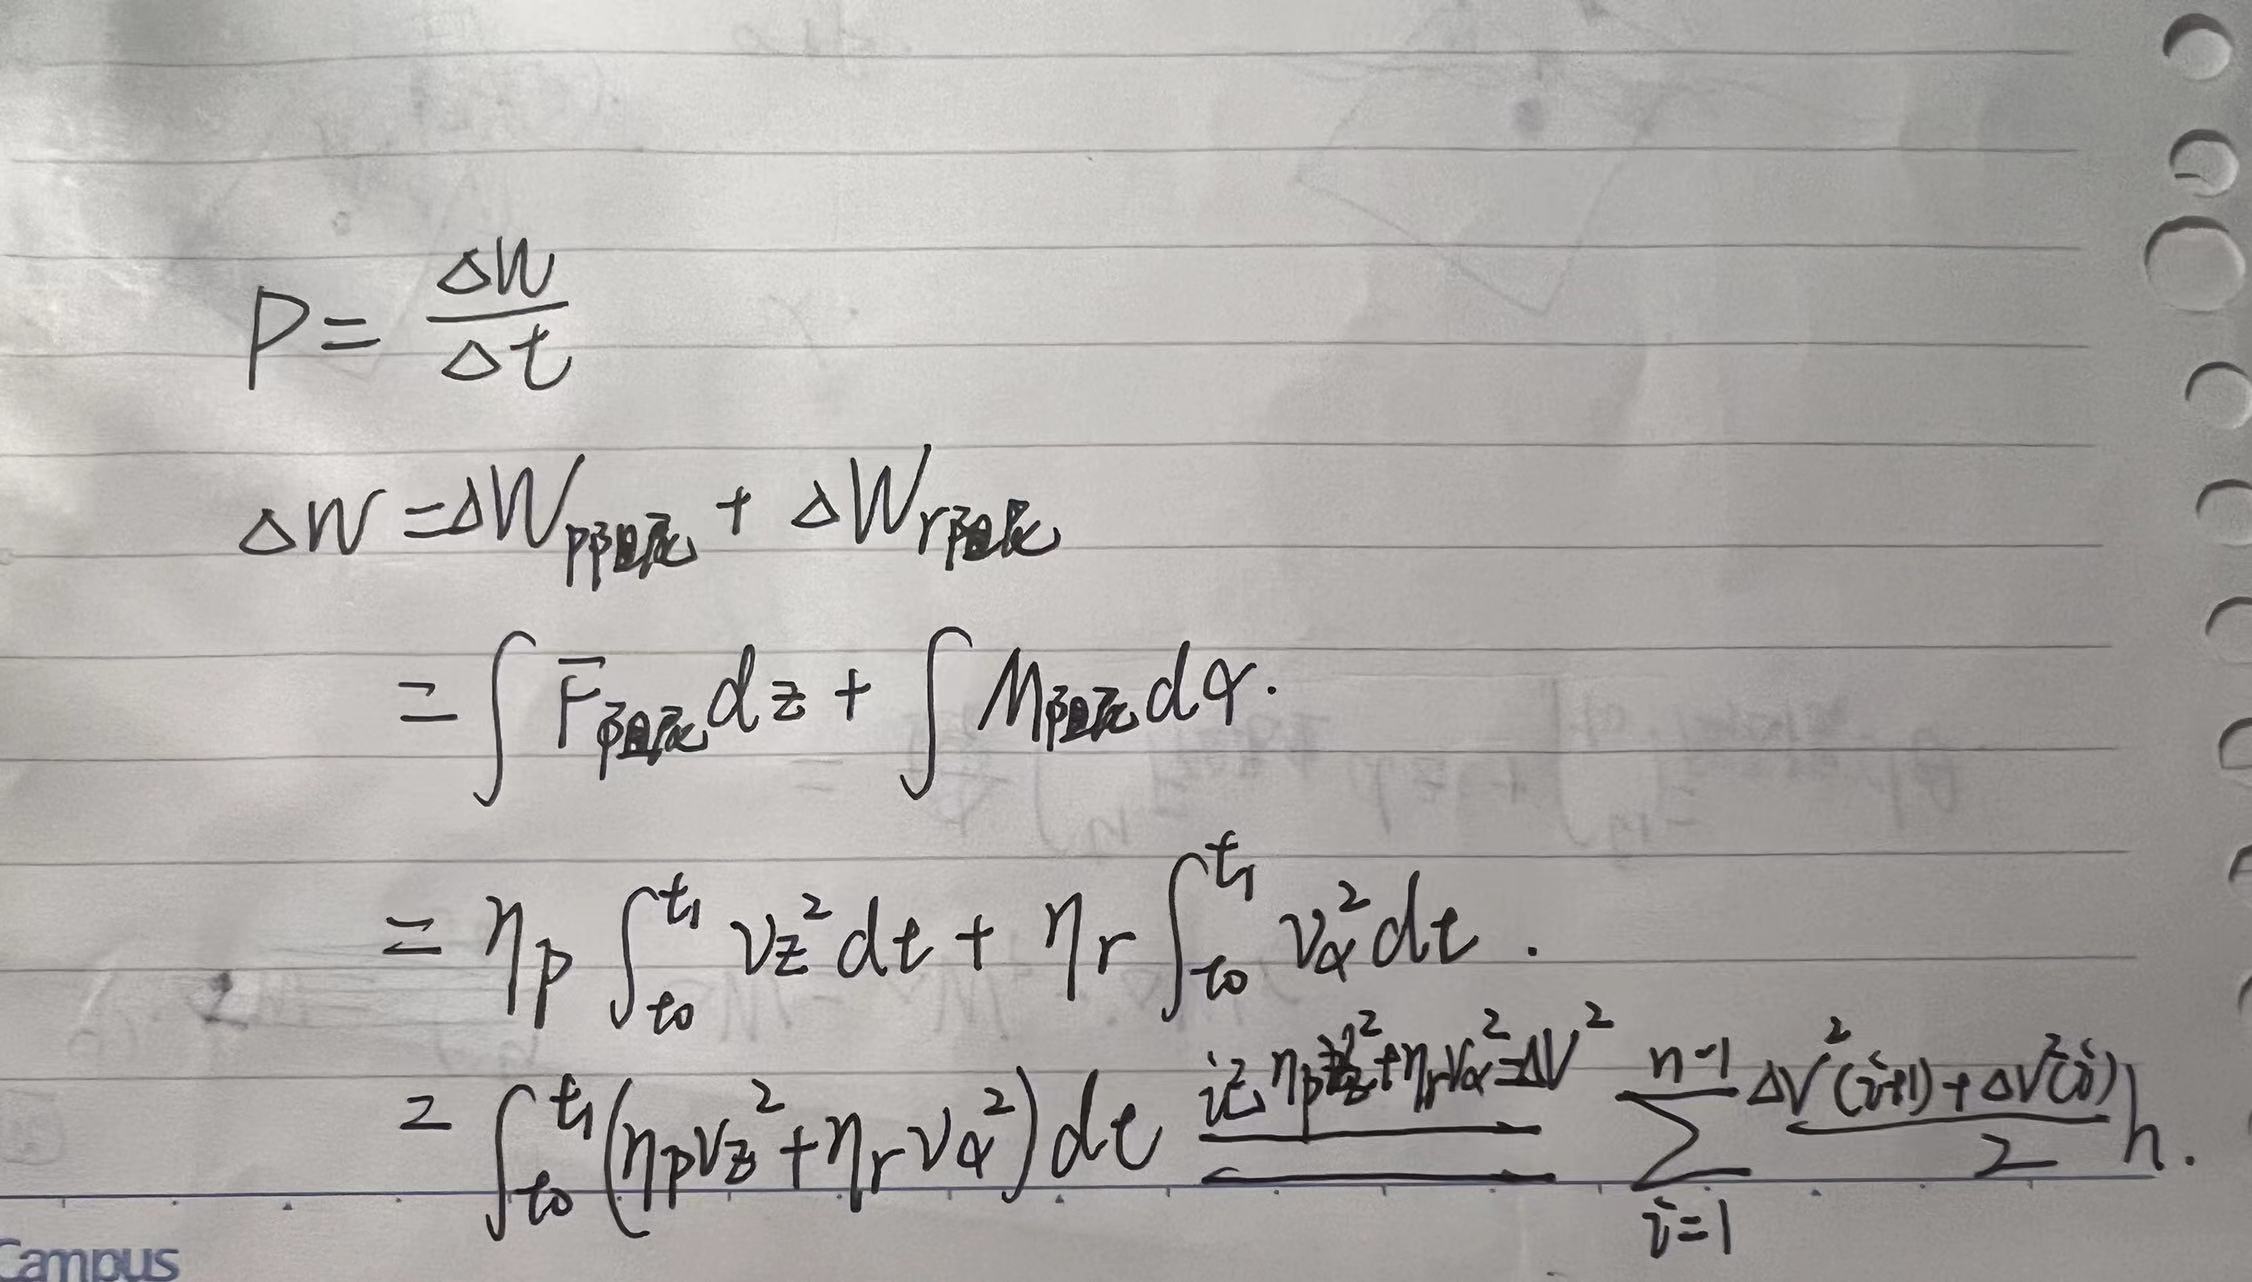 P = ΔW/Δt
ΔW = ΔW_P阻尼 + ΔW_r阻尼
= ∫ F_阻尼 dz + ∫ M_阻尼 dα.
= η_p ∫_{t_0}^{t_1} v_z² dt + η_r ∫_{t_0}^{t_1} v_α² dt .
= ∫_{t_0}^{t_1} (η_p v_z² + η_r v_α²) dt 记 η_p v_z² + η_r v_α² = ΔV² ∑_{i=1}^{n-1} (ΔV²(i+1) + ΔV²(i))/2 h.
Campus